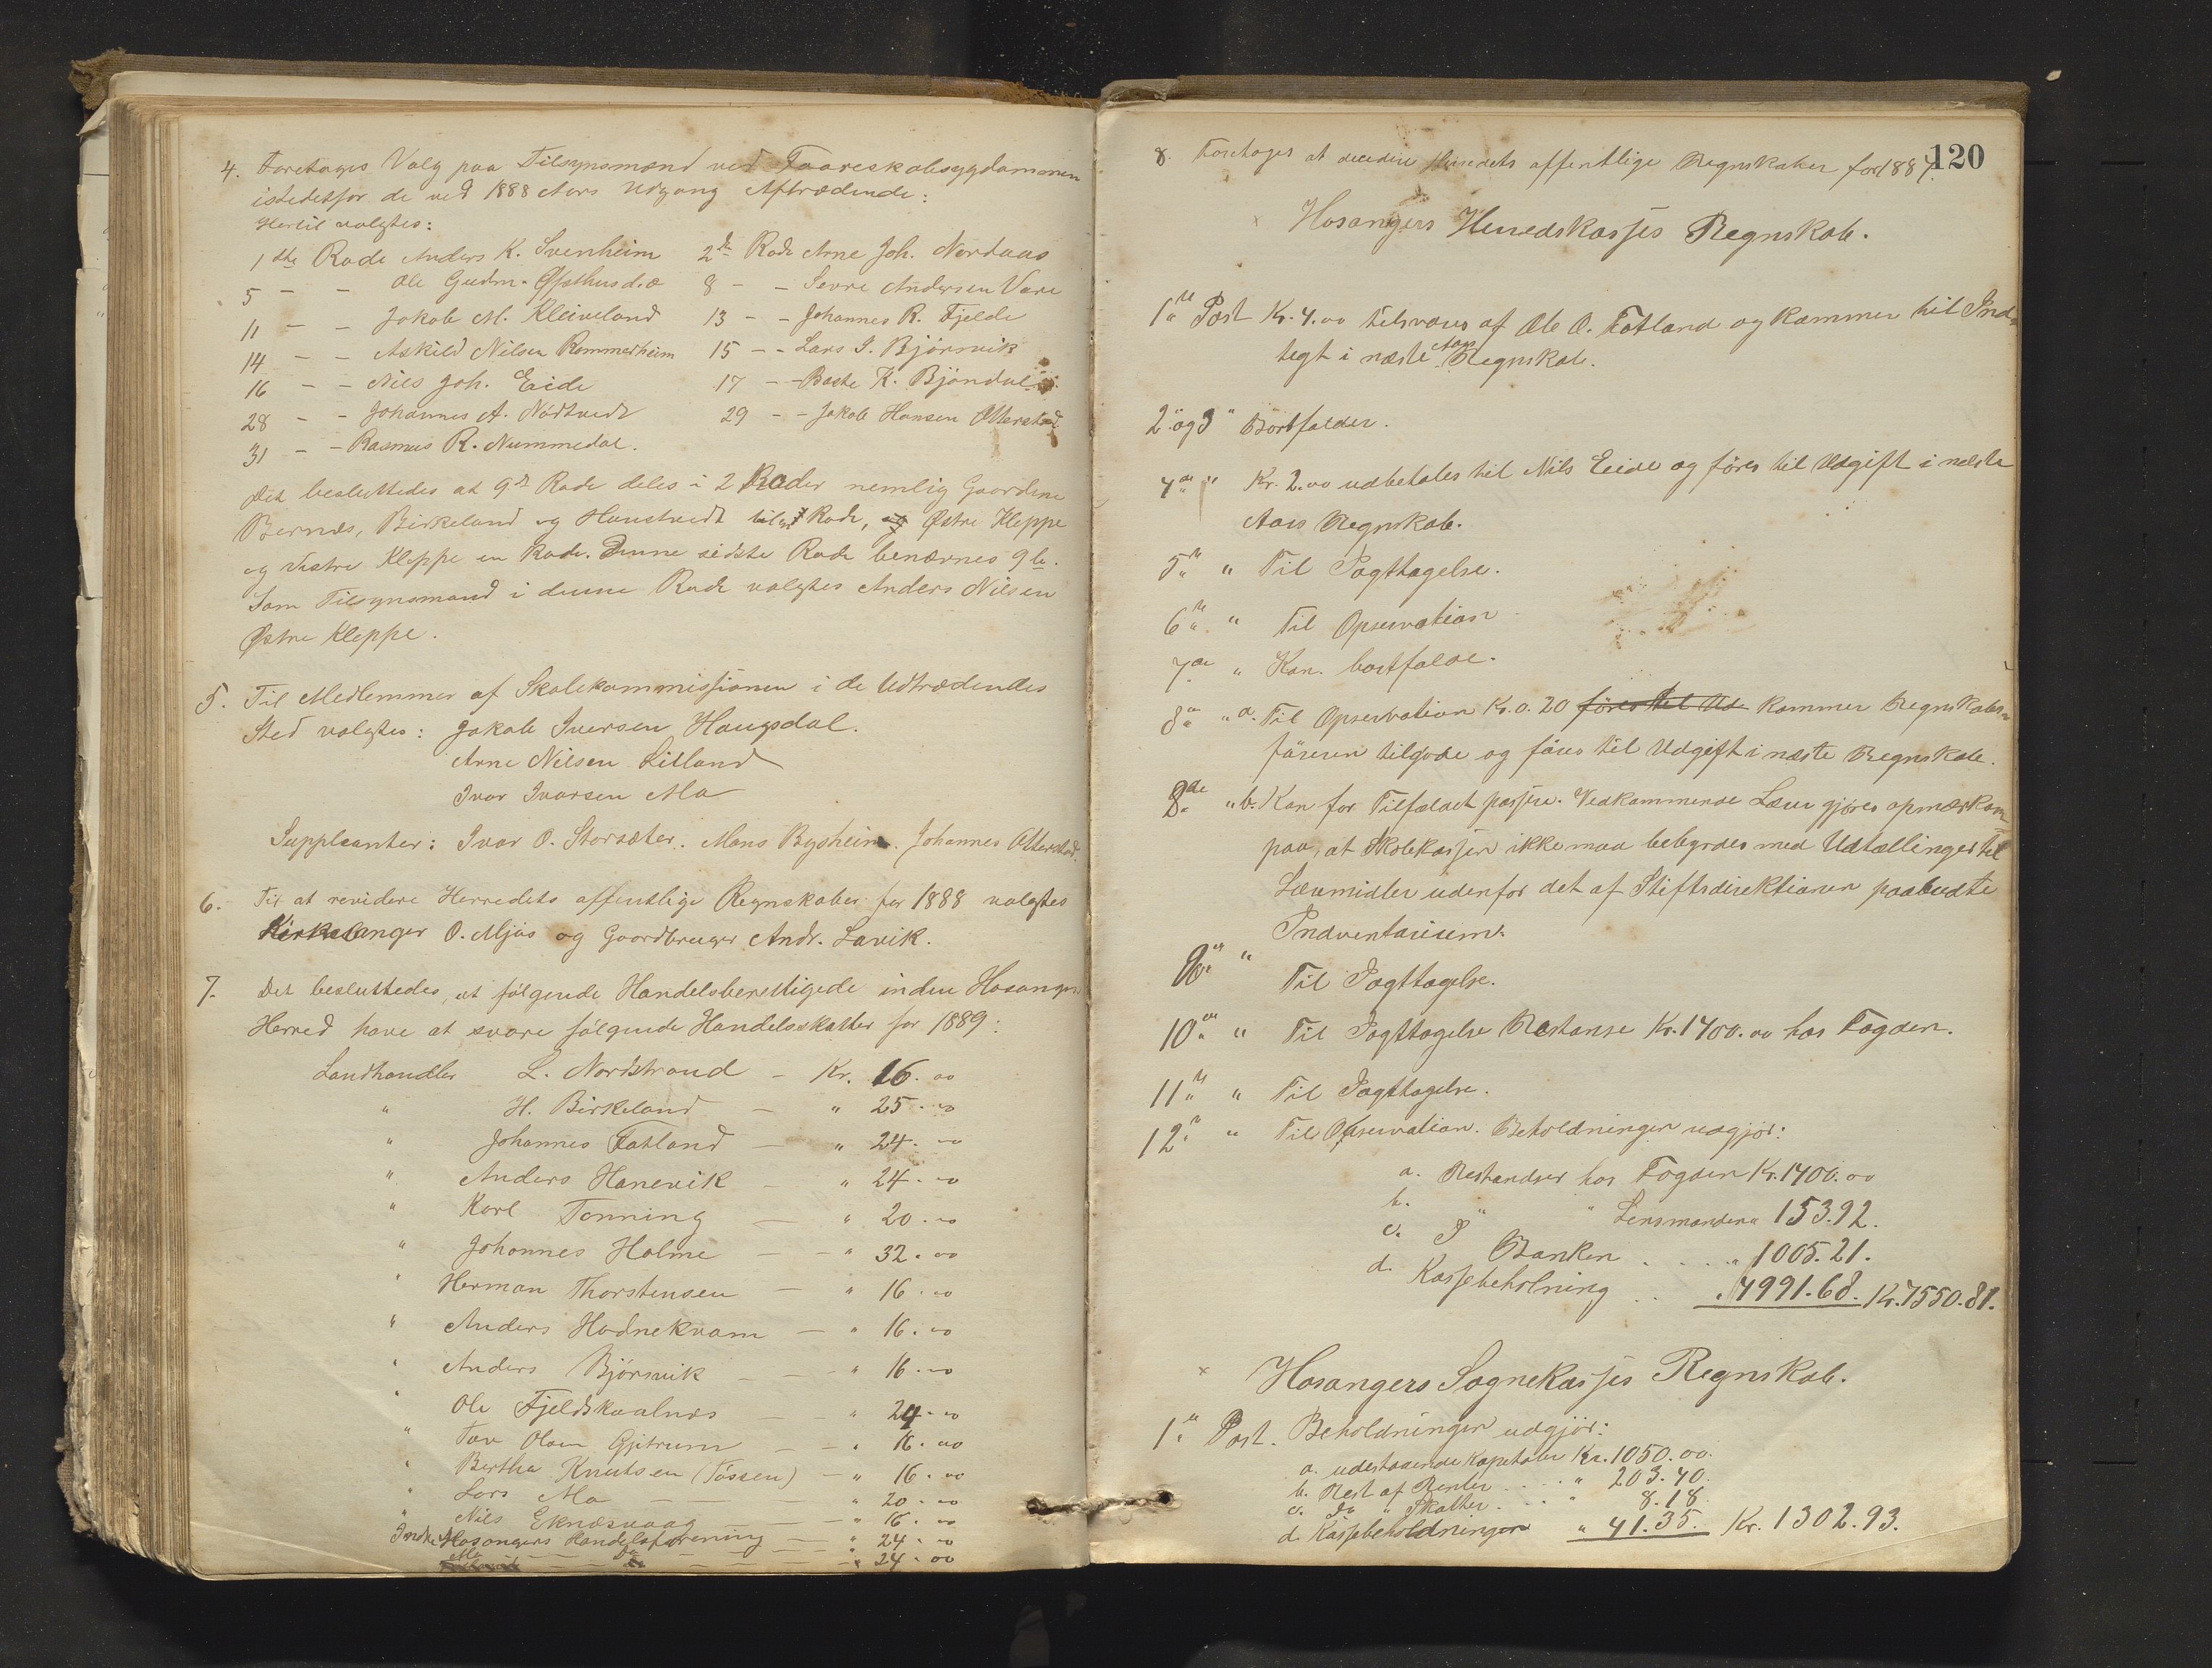 4. Foretages Valg paa Tilsynsmænd ved Faareskabsygdommen
istedetfor de ved 1888 Aars Udgang Aftrædende:
Hertil valgtes:
1ste Rode Anders K. Svenheim 2den Rode Arne Joh. Nordaas
5 - - Ole Gudm. Øfsthus d.æ 8 - - Sevre Andersen Vare
11 - - Jakob M. Kleiveland 13 - - Johannes R. Fjelde
14 - - Askild Nilsen Rommerheim 15 - - Lars I. Bjørsvik
16 - - Nils Joh. Eide 17 - - Baste K. Bjøndal
28 - - Johannes A. Nødtvedt 29 - - Jakob Hansen Otterstad
31 - - Rasmus R. Nummedal.
Det besluttedes at 9de Rode deles i 2 Roder nemlig Gaardene
Bernæs, Birkeland og Haustvedt til Rode, og Østre Kleppe
og Vestre Kleppe en Rode. Denne sidste Rode benævnes 9 b.
Som Tilsynsmand i denne Rode valgtes Anders Nilsen
Østre Kleppe.
5. Til Medlemmer af Skolekommissionen i de Udtrædendes
Sted valgtes: Jakob Iversen Haugsdal.
Arne Nilsen Litland
Ivar Ivarsen Mo
Suppleanter: Ivar O. Storsæter. Mons Bysheim. Johannes Otterstad.
6. Til at revidere Herredets offentlige Regnskaber for 1888 valgtes
Kirkesanger O. Mjøs og Gaardbruger Andr. Lavik.
7. Det besluttedes, at følgende Handelsberettigede inden Hosanger
Herred have at svare følgende Handelsskatter for 1889:
Landhandler L. Nordstrand - Kr. 16.00
" H. Birkeland - " 25.00
" Johannes Fatland - " 24.00
" Anders Hanevik - " 24.00
" Karl Tonning - " 20.00
" Johannes Holme - - " 32.00
" Herman Thorstensen - " 16.00
" Anders Hodnekvam - " 16.00
" Anders Bjørsvik - - " 16.00
" Ole Fjeldskaalnes - - " 24.00
" Tov Olsen Gjitrum - - " 16.00
" Bertha Knutsen (Tøssen) - " 16.00
" Lars Mo - - " 20.00
" Nils Eknæsvaag - - " 16.00
Indre Hosangers Handelsforening - " 24.00
Mo - Do - - - " 24.00
8. Foretoges at decidere Herredets offentlige Regnskaber for 1887.
120
Hosangers Herredskasses Regnskab.
1ste Post Kr. 4.00 tilsvares af Ole O. Fotland og kommer til Ind-
tegt i næste Aars Regnskab.
2 og 3 " Bortfalder.
4de " Kr. 2.00 udbetales til Nils Eide og føres til Udgift i næste
Aars Regnskab.
5te " Til Iagttagelse.
6te " Til Opservation
7de " Kan bortfalde.
8de " a. Til Opservation Kr. 0.20 føres til Ud kommer Regnskabs-
føreren tilgode og føres til Udgift i næste Regnskab.
8de " b. Kan for Tilfældet passere. Vedkommende Lærer gjøres opmærksom
paa, at Skolekassen ikke maa bebyrdes med Udtællinger til
Læremidler udenfor det af Stiftsdirektionen paabudte
Indventarium.
9de " Til Iagttagelse.
10de " Til Iagttagelse Restanse Kr. 1400.00 hos Fogden.
11te " Til Iagttagelse.
12te " Til Observation. Beholdningen udgjør:
a. Restandser hos Fogden Kr. 1400.00
b. " " Lensmanden " 153.92.
c. I Banken . . . . " 1005.21.
d. Kassebeholdning . . " 4991.68. Kr. 7550.81.
Hosangers Sognekasses Regnskab.
1ste Post. Beholdningen udgjør:
a. udestaaende Kapitaler Kr. 1050.00.
b. Rest af Renter . . . " 203.40.
c. Do " Skatter . . . " 8.18
d. Kassebeholdningen " 41.35. Kr. 1302.93.